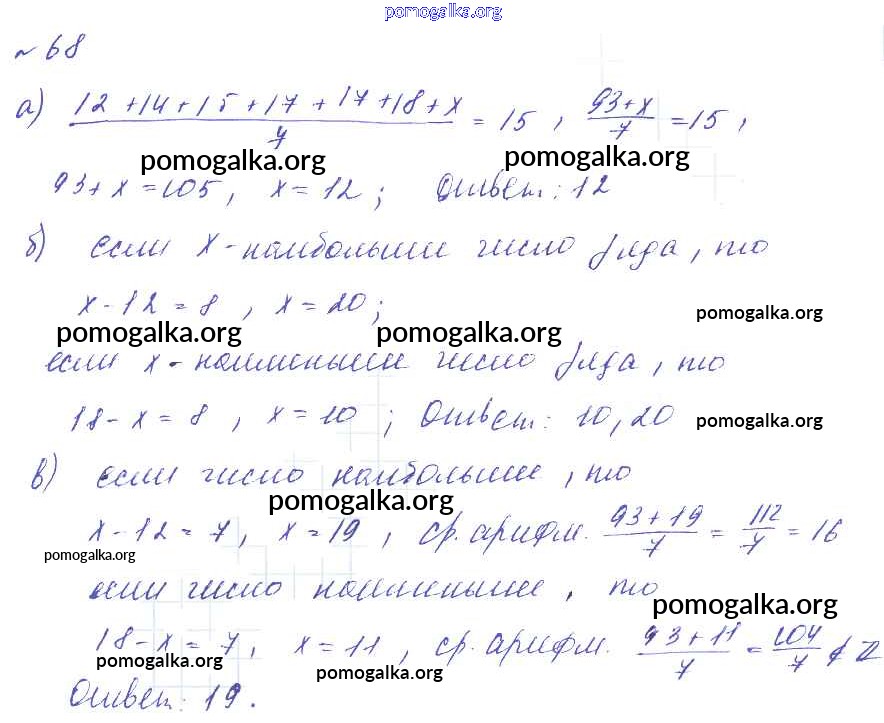 pomogalka.org
№ 68
а) (12 + 14 + 15 + 17 + 17 + 18 + x)/7 = 15 , (93 + x)/7 = 15 ,
pomogalka.org pomogalka.org
93 + x = 105 , x = 12 ; Ответ : 12
б) если x - наибольшее число ряда , то
x - 12 = 8 , x = 20 ;
pomogalka.org
pomogalka.org pomogalka.org
если x - наименьшее число ряда , то
18 - x = 8 , x = 10 ; Ответ : 10, 20
pomogalka.org
в) если число наибольшее , то
pomogalka.org
x - 12 = 7 , x = 19 , ср. арифм. (93 + 19)/7 = 112/7 = 16
pomogalka.org
если число наименьшее , то
pomogalka.org
18 - x = 7 , x = 11 , ср. арифм. (93 + 11)/7 = 104/7 ∉ Z
pomogalka.org
pomogalka.org
Ответ : 19 .